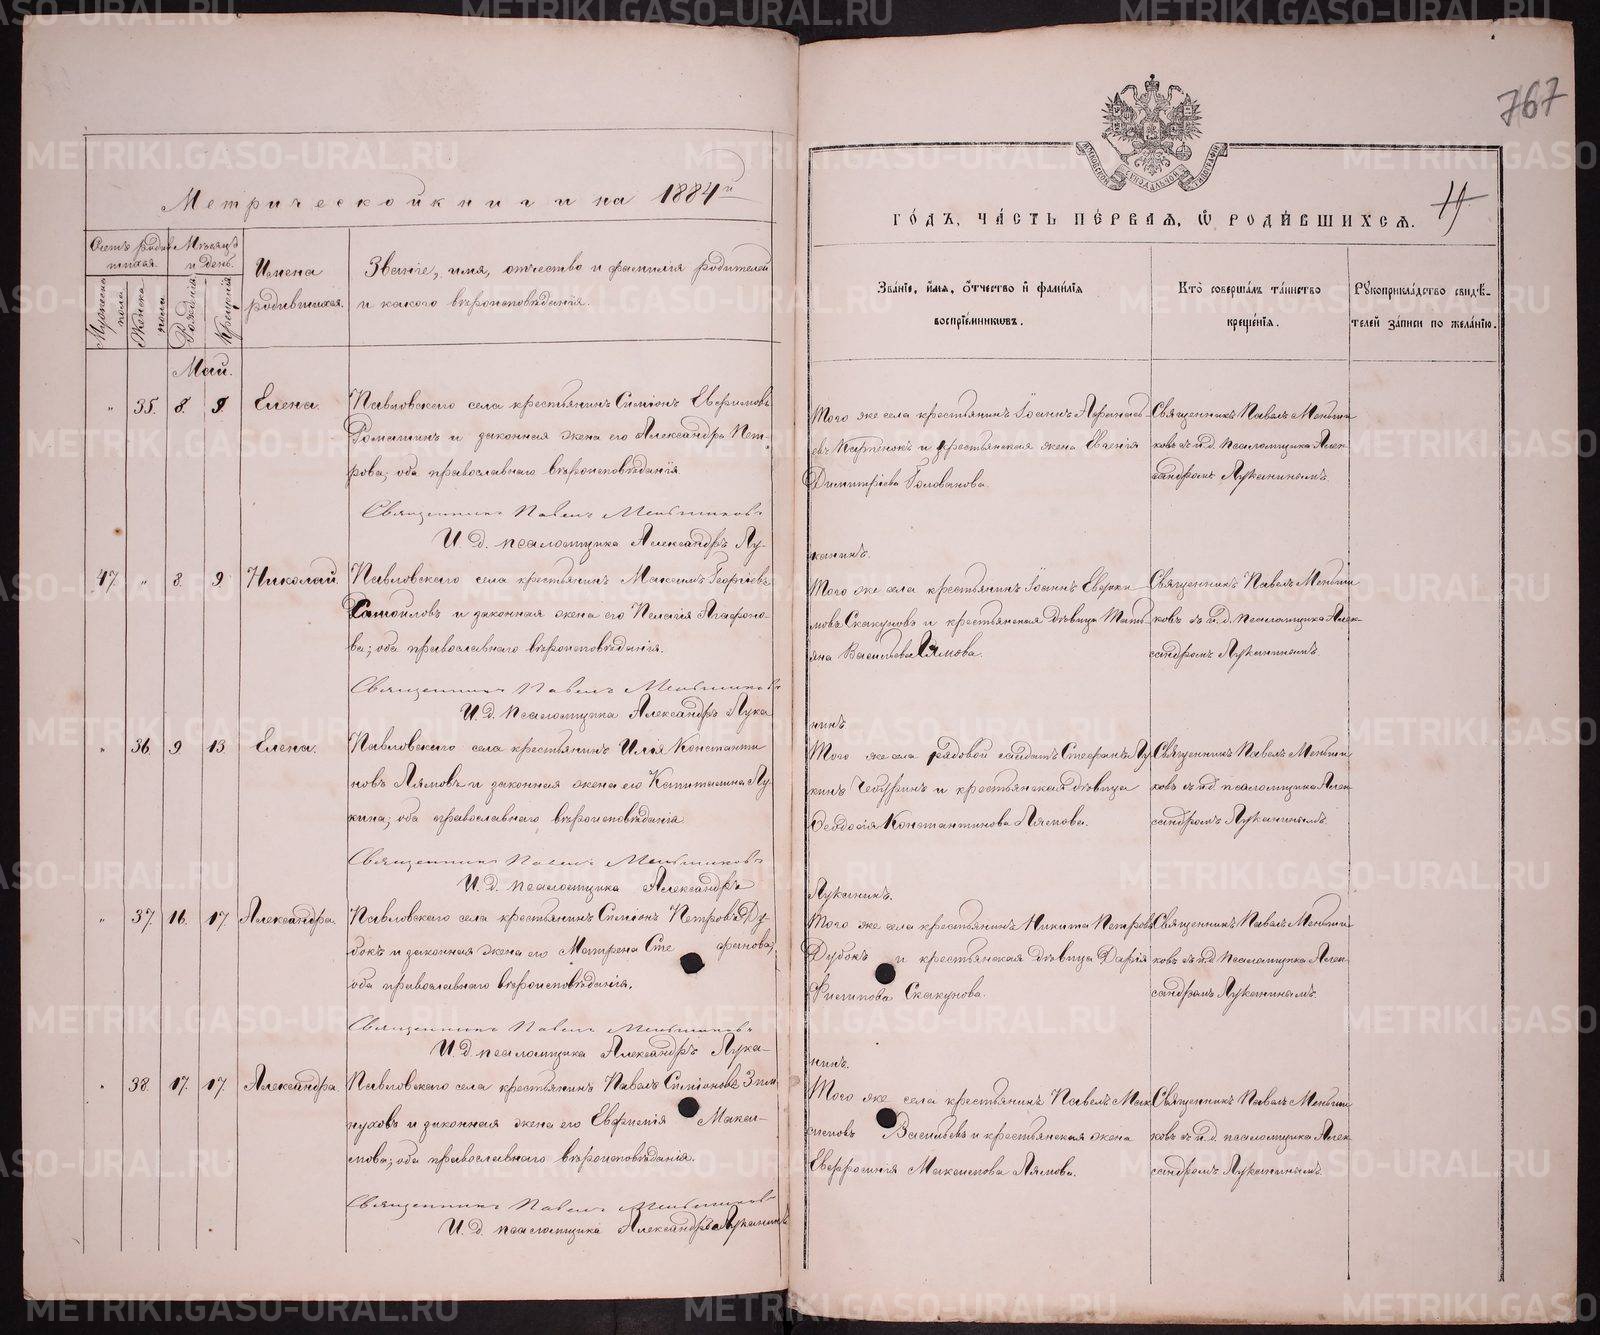 767
Метрической книги на 1884й
го́дъ, ча́сть пе́рвая, ѡ҆ роди́вшихсѧ.
Счетъ родив
шихся.
Мѣсяцъ
и день.
Имена
родившихся.
Званіе, имя, отчество и фамилія родителей
и какого вѣроисповѣданія.
Мужеска
пола
Женска
пола
Рожденія
Крещенія
Зва́ніе, и҆́мя, ѻ҆́тчество и҆ фами́лія
воспріе́мникѡвъ.
Кто̀ соверша́лъ та́инство
креще́нія.
Рꙋкоприкла́дство свидѣ́-
телей за́писи по жела́нію.
Май.
" 35. 8. 9. Елена.
Павловскаго села крестьянинъ Симіонъ Евфимовъ
Ромашинъ и законная жена его Александра Пет-
рова; оба православнаго вѣроисповѣданія.
Священникъ Павелъ Меньшиковъ
И. д. псаломщика Александръ Лу-
канинъ.
Того же села крестьянинъ Іоаннъ Афанасі-
евъ Картенюкъ и крестьянская жена Евгенія
Димитріева Голованова.
Священникъ Павелъ Меньши
ковъ съ и.д. псаломщика Алек-
сандромъ Луканинымъ.
47. " 8. 9. Николай.
Павловскаго села крестьянинъ Максимъ Георгіевъ
Самойловъ и законная жена его Пелагія Агафоно-
ва; оба православнаго вѣроисповѣданія.
Священникъ Павелъ Меньшиковъ
И. д. псаломщика Александръ Лука
нинъ
Того же села крестьянинъ Іоаннъ Евфи
мовъ Скакуновъ и крестьянская дѣвица Тать-
яна Васильева Лямова.
Священникъ Павелъ Меньши
ковъ съ и.д. псаломщика Алек-
сандромъ Луканинымъ.
" 36. 9 13 Елена.
Павловскаго села крестьянинъ Илія Константи
новъ Лямовъ и законная жена его Капитолина Лу-
кина; оба православнаго вѣроисповѣданія
Священникъ Павелъ Меньшиковъ
И. д. псаломщика Александръ
Луканинъ.
Того же села рядовой солдатъ Стефанъ Лу
кинъ Чебуринъ и крестьянская дѣвица
Ѳеодосія Константинова Лямова.
Священникъ Павелъ Меньши
ковъ съ и.д. псаломщика Алек-
сандромъ Луканинымъ.
" 37. 16. 17. Александра.
Павловскаго села крестьянинъ Симіонъ Петровъ Ду-
бокъ и законная жена его Матрена Сте фанова;
оба православнаго вѣроисповѣданія.
Священникъ Павелъ Меньшиковъ
И. д. псаломщика Александръ Лука-
нинъ.
Того же села крестьянинъ Никита Петровъ
Дубокъ и крестьянская дѣвица Дарія
Филипова Скакунова.
Священникъ Павелъ Меньши
ковъ съ и.д. псаломщика Алек-
сандромъ Луканинымъ.
" 38. 17. 17. Александра.
Павловскаго села крестьянинъ Павелъ Симіоновъ Зпи
нуховъ и законная жена его Евфимія Макси-
мова; оба православнаго вѣроисповѣданія.
Священникъ Павелъ Меньшиковъ
И. д. псаломщика Александръ Луканинъ
Того же села крестьянинъ Павелъ Мак
симовъ Васильевъ и крестьянская жена
Евфросинія Максимова Лямова.
Священникъ Павелъ Меньши
ковъ съ и.д. псаломщика Алек-
сандромъ Луканинымъ.
METRIKI.GASO-URAL.RU